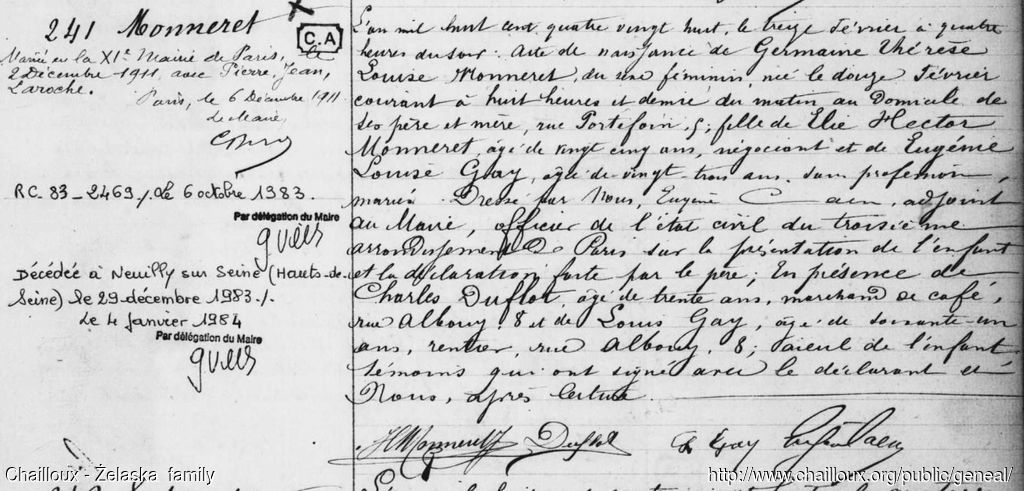 241 Monneret
C.A
Marié en la XIe Mairie de Paris, le
2 Décembre 1911, avec Pierre, Jean,
Laroche.
Paris, le 6 Décembre 1911
Le Maire
R.C. 83-2469./. le 6 octobre 1983.
Par délégation du Maire
Décédée à Neuilly sur Seine (Hauts-de-
Seine) le 29 décembre 1983./.
Le 4 janvier 1984
Par délégation du Maire
L'an mil huit cent quatre vingt huit, le treize Février à quatre
heures du soir. Acte de naissance de Germaine Thérèse
Louise Monneret, du sexe féminin née le douze Février
courant à huit heures et demie du matin au Domicile de
ses père et mère, rue Portefoin, 5; fille de Elie Hector
Monneret, âgé de vingt cinq ans, négociant et de Eugénie
Louise Gay, âgée de vingt trois ans, sans profession,
mariés. Dressé par Nous, Eugène Caen, adjoint
au Maire, officier de l'état civil du troisième
arrondissement De Paris sur la présentation de l'enfant
et la déclaration faite par le père; En présence de
Charles Duflot, âgé de trente ans, marchand de café,
rue Albouy, 8 et de Louis Gay, âgé de soixante un
ans, rentier, rue Albouy, 8; aïeul de l'enfant
témoins qui ont signé avec le déclarant et
Nous, après lecture.
HMonneret Duflot L Gay Eugène Caen
Chailloux - Żelaska family
http://www.chailloux.org/public/geneal/